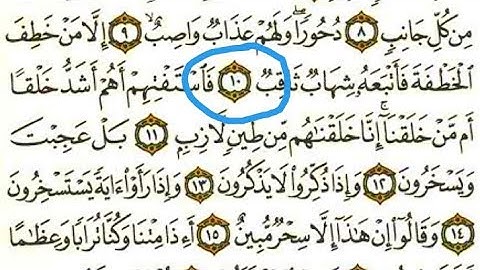 مِن كُلِّ جَانِبٍ ٨ دُحُورًا ۖ وَلَهُمْ عَذَابٌ وَاصِبٌ ٩ إِلَّا مَنْ خَطِفَ
الْخَطْفَةَ فَأَتْبَعَهُ شِهَابٌ ثَاقِبٌ ١٠ فَاسْتَفْتِهِمْ أَهُمْ أَشَدُّ خَلْقًا
أَم مَّنْ خَلَقْنَا ۚ إِنَّا خَلَقْنَاهُم مِّن طِينٍ لَّازِبٍ ١١ بَلْ عَجِبْتَ
وَيَسْخَرُونَ ١٢ وَإِذَا ذُكِّرُوا لَا يَذْكُرُونَ ١٣ وَإِذَا رَأَوْا ءَايَةً يَسْتَسْخِرُونَ
١٤ وَقَالُوا إِنْ هَٰذَا إِلَّا سِحْرٌ مُّبِينٌ ١٥ أَءِذَا مِتْنَا وَكُنَّا تُرَابًا وَعِظَامًا